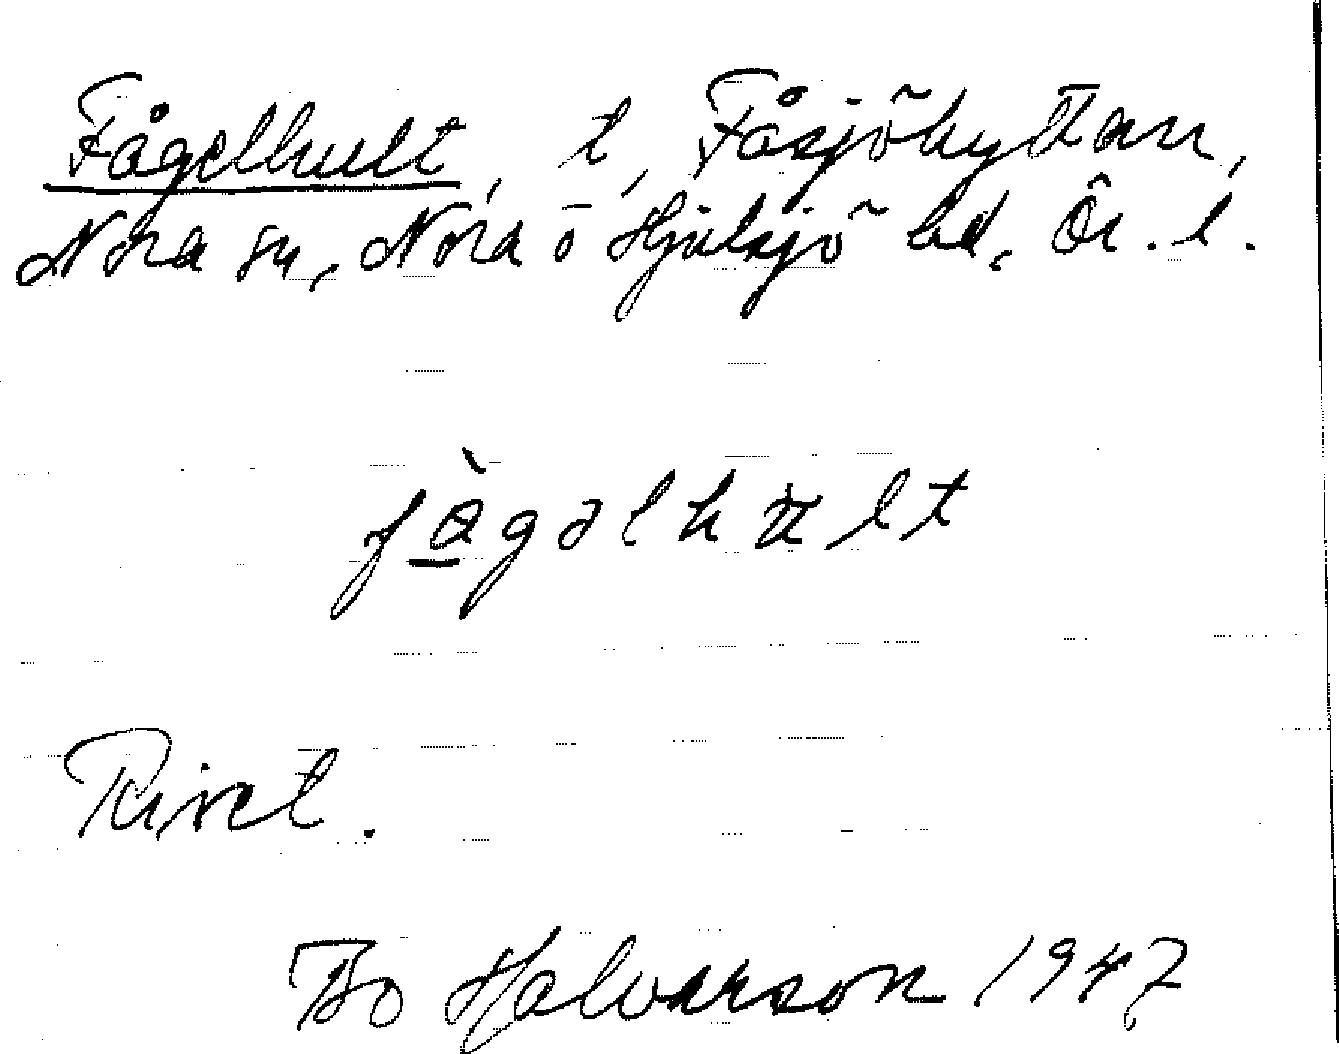 Fågelhult, t, Fåsjöhyttan,
Nora sn, Nora o Hjulsjö bd, Ör. l.
Rivet.
Bo Halvarson 1947